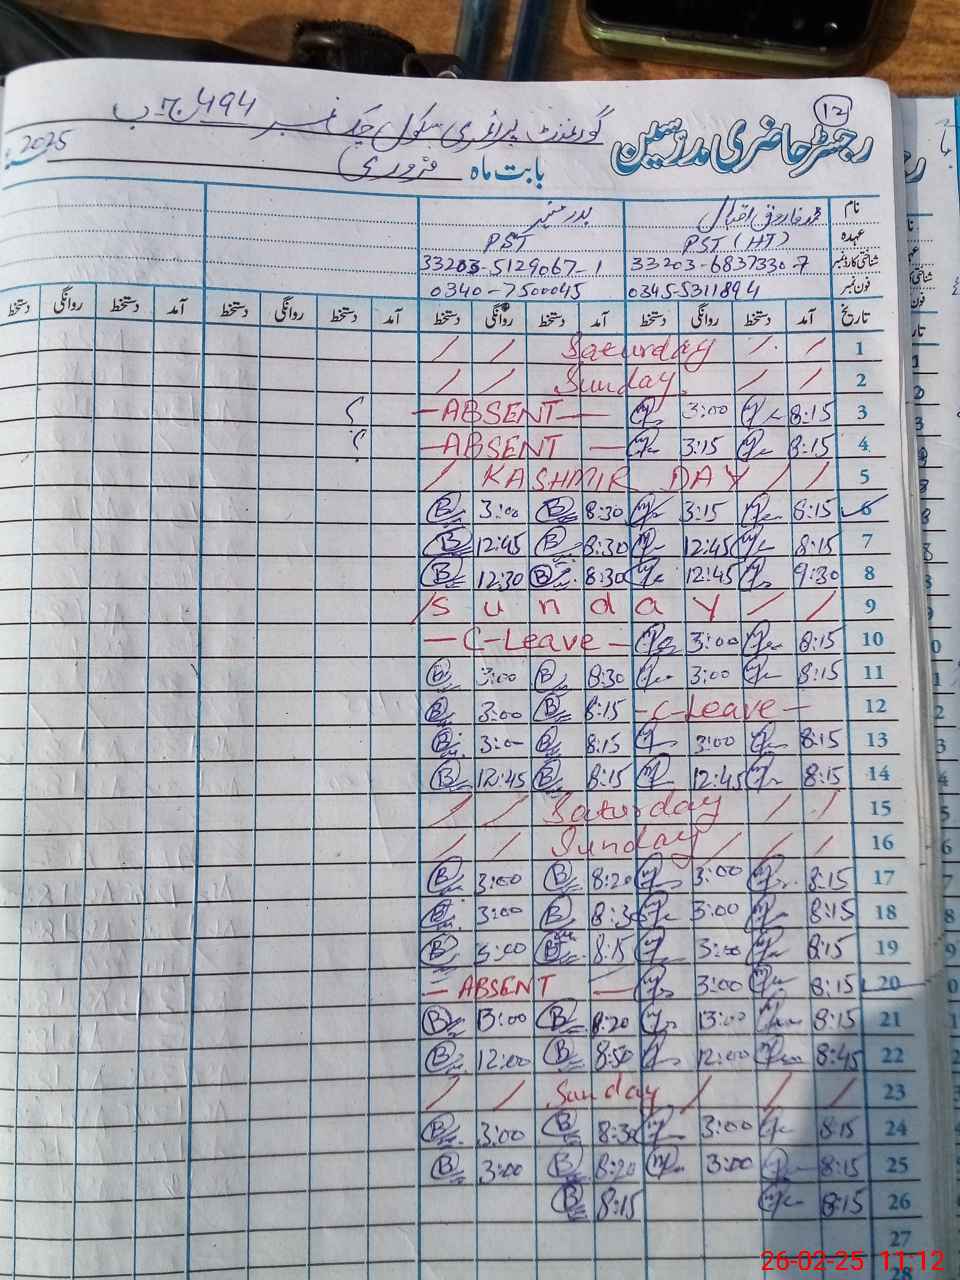 12
رجسٹر حاضری مدرسین گورنمنٹ پرائمری سکول چک نمبر 494 ج ب
بابت ماہ فروری 2025
نام محمد فاروق اقبال بدر منیر
عہدہ PST (HT) PST
شناختی کارڈ نمبر 33203-6837330 7 33203-5129067-1
فون نمبر 0345-5311894 0340-7500045
تاریخ آمد دستخط روانگی دستخط آمد دستخط روانگی دستخط آمد دستخط روانگی دستخط آمد دستخط روانگی دستخط
1 / / Saturday / /
2 / / Sunday / /
3 8:15 3:00 —ABSENT— ؟
4 8:15 3:15 —ABSENT— ؟
5 / / KASHMIR DAY /
6 8:15 3:15 8:30 B 3:00 B
7 8:15 12:45 8:30 B 12:45 B
8 9:30 12:45 8:30 B 12:30 B
9 / / Sunday /
10 8:15 3:00 —C-Leave—
11 8:15 3:00 8:30 B 3:00 B
12 -C-Leave- 8:15 B 3:00 B
13 8:15 3:00 8:15 B 3:00 B
14 8:15 12:45 8:15 B 12:45 B
15 / / Saturday / /
16 / / / Sunday / /
17 8:15 3:00 8:20 B 3:00 B
18 8:15 3:00 8:30 B 3:00 B
19 8:15 3:00 8:15 B 3:00 B
20 8:15 3:00 — ABSENT —
21 8:15 13:00 8:20 B 13:00 B
22 8:45 12:00 8:50 B 12:00 B
23 / / / Sunday / /
24 8:15 3:00 8:30 B 3:00 B
25 8:15 3:00 8:20 B 3:00 B
26 8:15 8:15 B
27
28
26-02-25 11:12